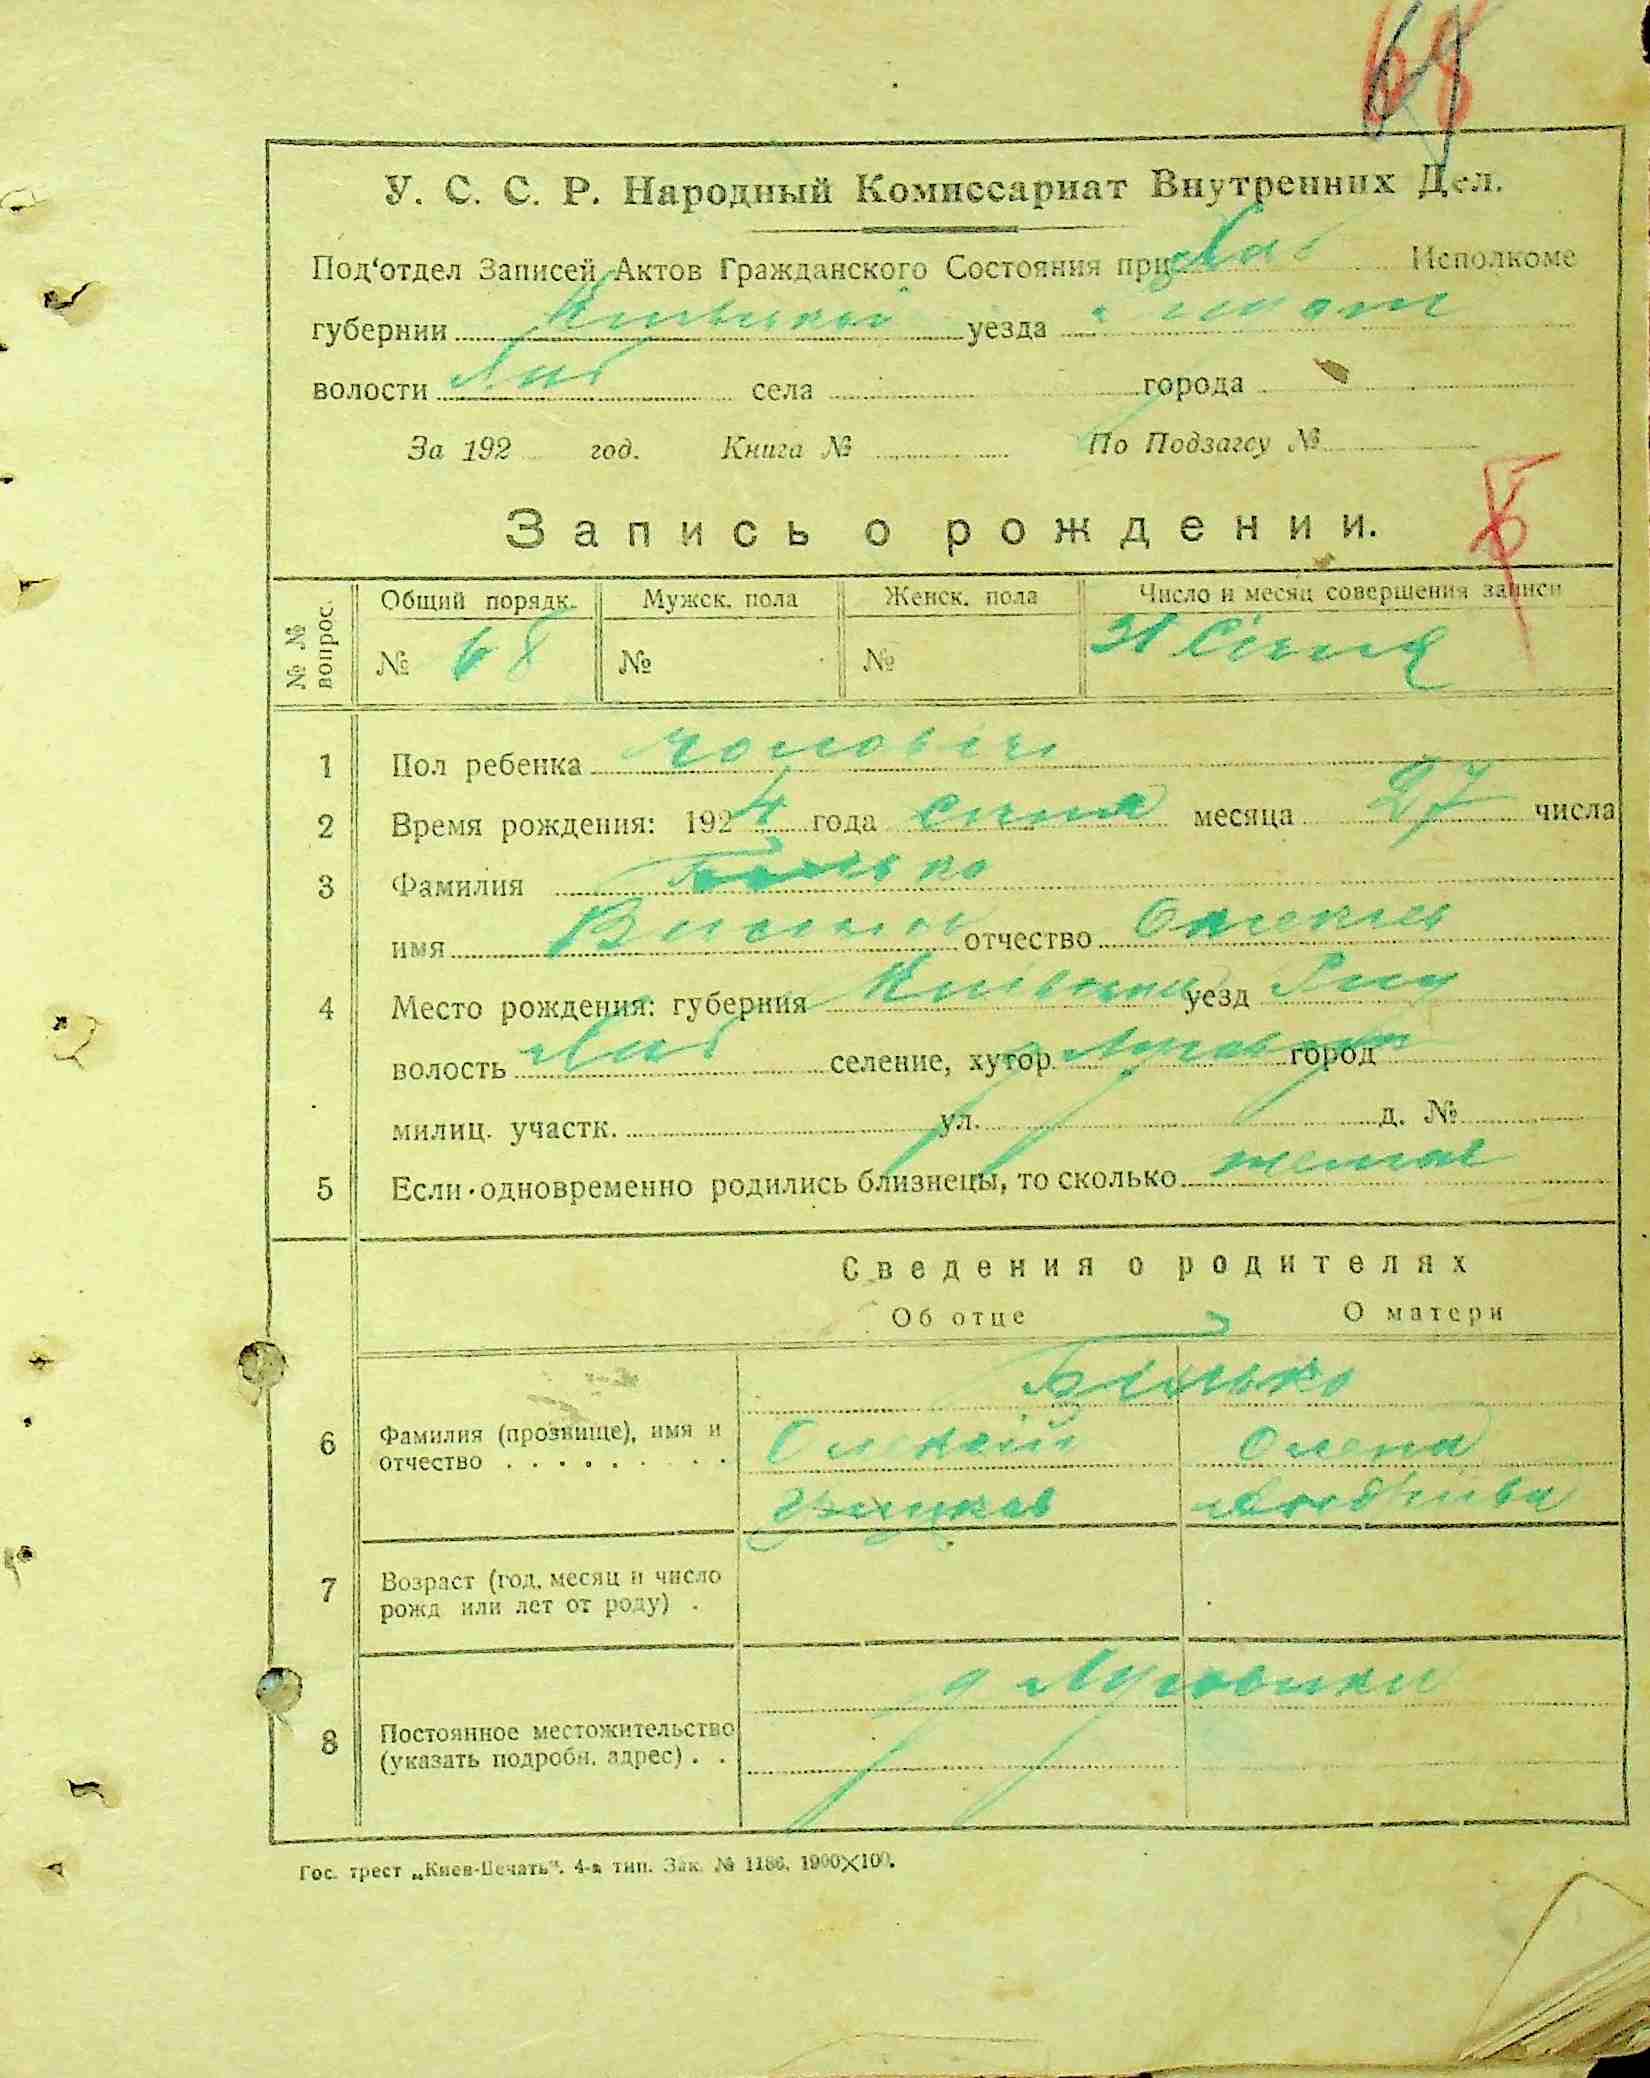 68
У. С. С. Р. Народный Комиссариат Внутренних Дел.
Под‘отдел Записей Актов Гражданского Состояния при Исполкоме
губернии уезда
волости села города
За 192 год. Книга № По Подзагсу №
Запись о рождении.
№ № вопрос. Общий порядк. Мужск. пола Женск. пола Число и месяц совершения записи
№ 68 № № 31 Січня
1 Пол ребенка чоловіч
2 Время рождения: 1924 года січня месяца 27 числа
3 Фамилия Білько
имя отчество Олексієв
4 Место рождения: губерния Київська уезд
волость селение, хутор город
милиц. участк. ул. д. №
5 Если одновременно родились близнецы, то сколько немає
Сведения о родителях
Об отце О матери
Білько
6 Фамилия (прозвище), имя и Олексій Олена
отчество
7 Возраст (год, месяц и число
рожд или лет от роду) .
8 Постоянное местожительство
(указать подробн. адрес) . .
Гос. трест „Киев-Печать“. 4-я тип. Зак. № 1186. 1900×100.